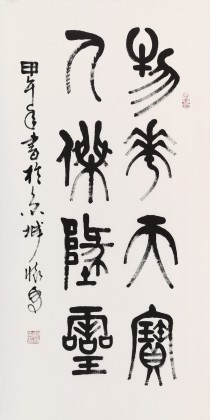 物華天寶
人傑隆靈
甲午年書於京城